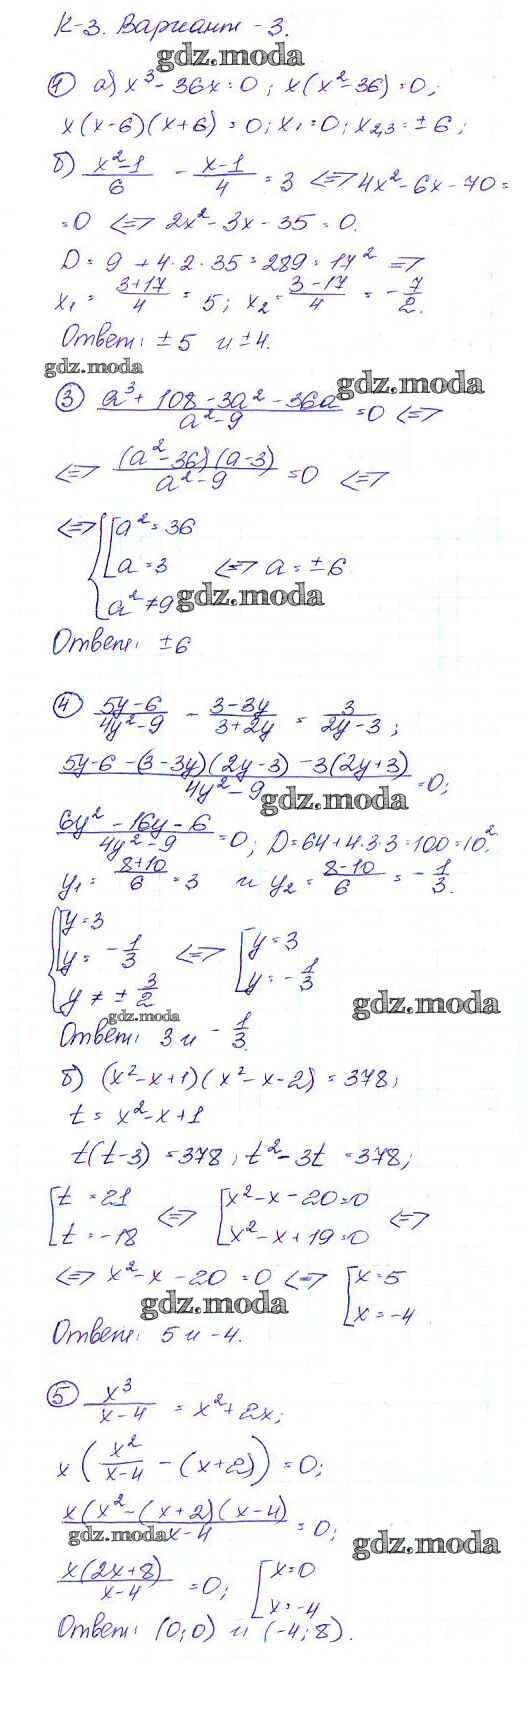 К-3. Вариант-3.
gdz.moda
① а) x³ - 36x = 0 ; x(x² - 36) = 0;
x(x-6)(x+6) = 0; x₁ = 0; x₂,₃ = ±6;
б) (x²-1)/6 - (x-1)/4 = 3 <=> 4x² - 6x - 70 =
= 0 <=> 2x² - 3x - 35 = 0.
D = 9 + 4·2·35 = 289 = 17² =>
x₁ = (3+17)/4 = 5; x₂ = (3-17)/4 = -7/2.
Ответ: ±5 и ±4.
gdz.moda
gdz.moda
③ (a³ + 108 - 3a² - 36a)/(a² - 9) = 0 <=>
<=> (a² - 36)(a - 3)/(a² - 9) = 0 <=>
<=> {[a² = 36
[a = 3 <=> a = ±6
a² ≠ 9
gdz.moda
Ответ: ±6
gdz.moda
④ (5y-6)/(4y²-9) - (3-3y)/(3+2y) = 3/(2y-3);
(5y-6-(3-3y)(2y-3)-3(2y+3))/(4y²-9) = 0;
gdz.moda
(6y² - 16y - 6)/(4y²-9) = 0; D = 64 + 4·3·3 = 100 = 10².
y₁ = (8+10)/6 = 3 и y₂ = (8-10)/6 = -1/3.
{[y = 3
[y = -1/3 <=> [y = 3
y ≠ ±3/2 [y = -1/3
gdz.moda
gdz.moda
Ответ: 3 и -1/3.
б) (x² - x + 1)(x² - x - 2) = 378;
t = x² - x + 1
t(t-3) = 378; t² - 3t = 378;
[t = 21 <=> [x² - x - 20 = 0
[t = -18 [x² - x + 19 = 0 <=>
<=> x² - x - 20 = 0 <=> [x = 5
[x = -4
gdz.moda
Ответ: 5 и -4.
⑤ x³/(x-4) = x² + 2x;
x(x²/(x-4) - (x+2)) = 0;
x(x² - (x+2)(x-4)/(x-4) = 0;
gdz.moda
gdz.moda
x(2x+8)/(x-4) = 0; [x = 0
[x = -4
Ответ: (0;0) и (-4;8).